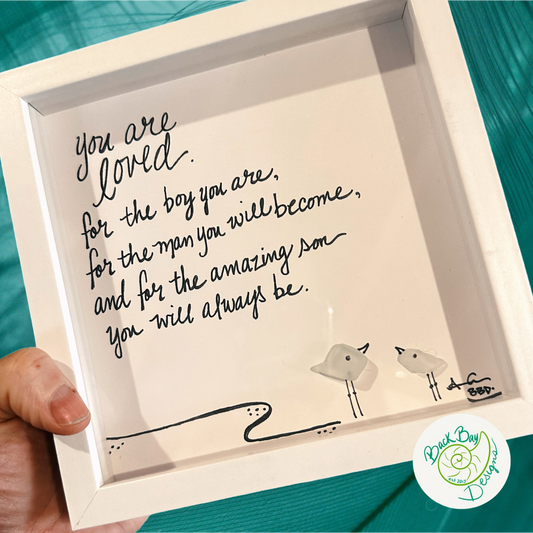 you are
loved.
for the boy you are,
for the man you will become,
and for the amazing son
you will always be.
BBD.
Back Bay
Designs
EST 2013